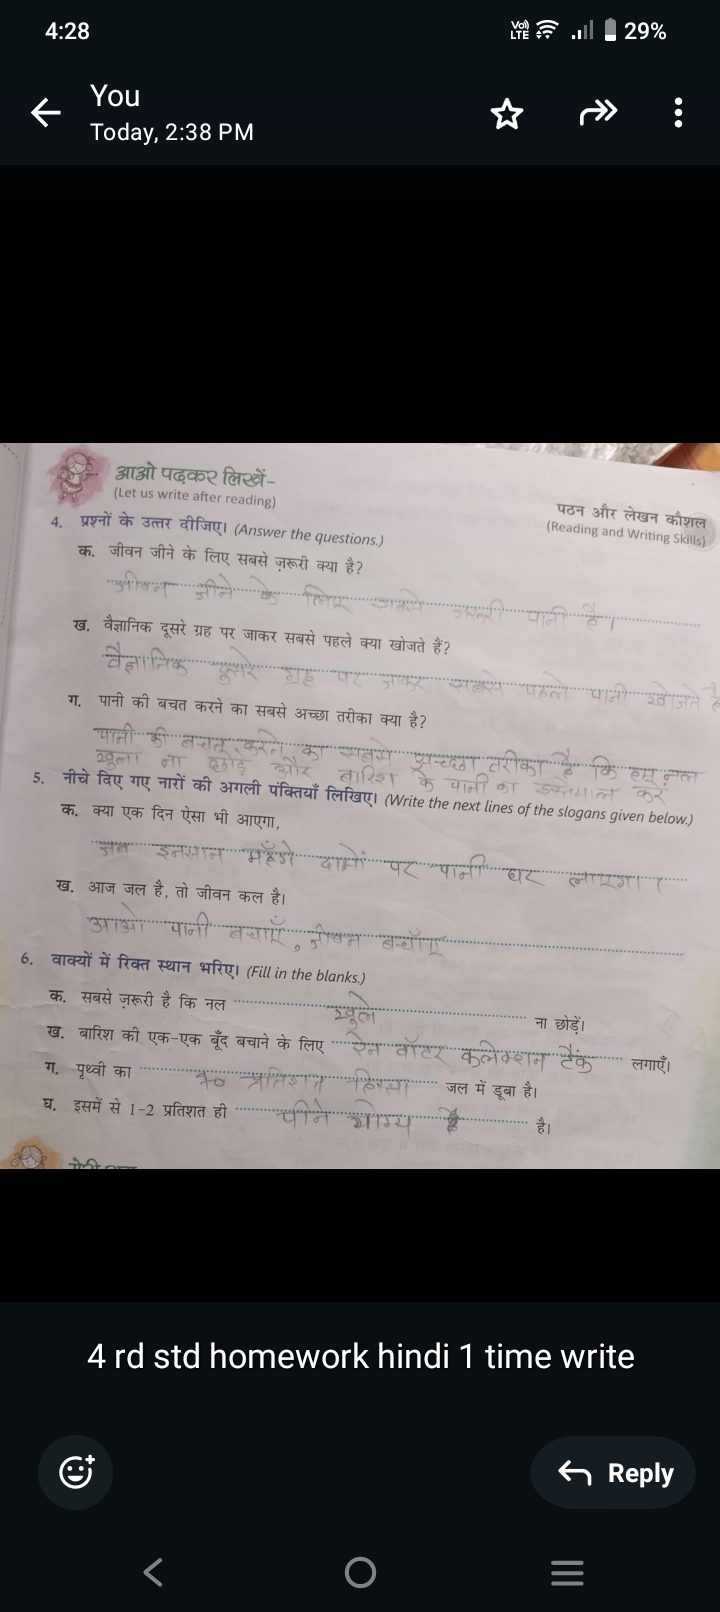 4:28
Vo) LTE 29%
You
Today, 2:38 PM
आओ पढ़कर लिखें-
(Let us write after reading)
पठन और लेखन कौशल
(Reading and Writing Skills)
4. प्रश्नों के उत्तर दीजिए। (Answer the questions.)
क. जीवन जीने के लिए सबसे ज़रूरी क्या है?
जीवन जीने के लिए सबसे जरूरी पानी है।
ख. वैज्ञानिक दूसरे ग्रह पर जाकर सबसे पहले क्या खोजते हैं?
वैज्ञानिक दुसरे ग्रह पर जाकर सबसे पहले पानी खोजते है
ग. पानी की बचत करने का सबसे अच्छा तरीका क्या है?
पानी की बचत करने का सबसे अच्छा तरीका है कि हम नल
खुला ना छोड़े और बारिश के पानी का इस्तेमाल करें
5. नीचे दिए गए नारों की अगली पंक्तियाँ लिखिए। (Write the next lines of the slogans given below.)
क. क्या एक दिन ऐसा भी आएगा,
जब इनसान महँगे दामों पर पानी घर लाएगा।
ख. आज जल है, तो जीवन कल है।
आओ पानी बचाएँ, जीवन बचाएँ
6. वाक्यों में रिक्त स्थान भरिए। (Fill in the blanks.)
क. सबसे ज़रूरी है कि नल खुले ना छोड़ें।
ख. बारिश की एक-एक बूँद बचाने के लिए रेन वॉटर कलेक्शन टैंक लगाएँ।
ग. पृथ्वी का 70 प्रतिशत हिस्सा जल में डूबा है।
घ. इसमें से 1-2 प्रतिशत ही पीने योग्य है है।
4 rd std homework hindi 1 time write
Reply